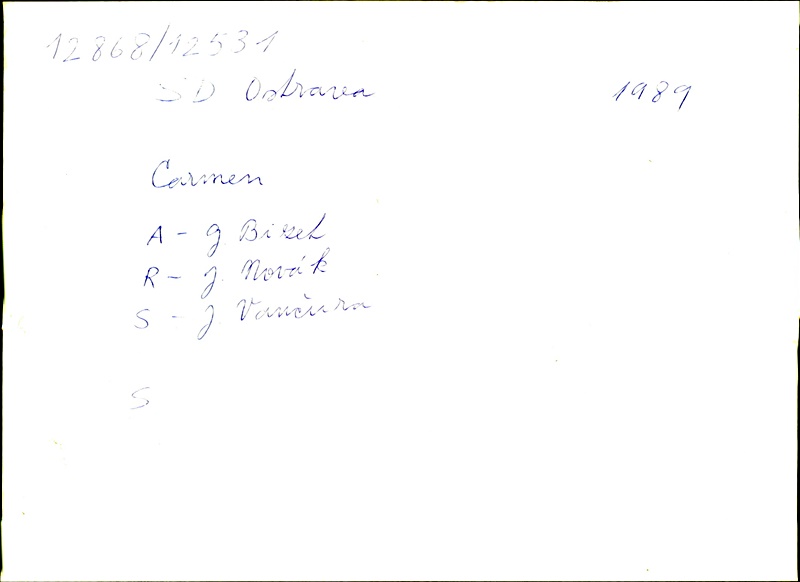 12868/12531
SD Ostrava 1989
Carmen
A - G. Bizet
R - J. Novák
S - J. Vančura
S